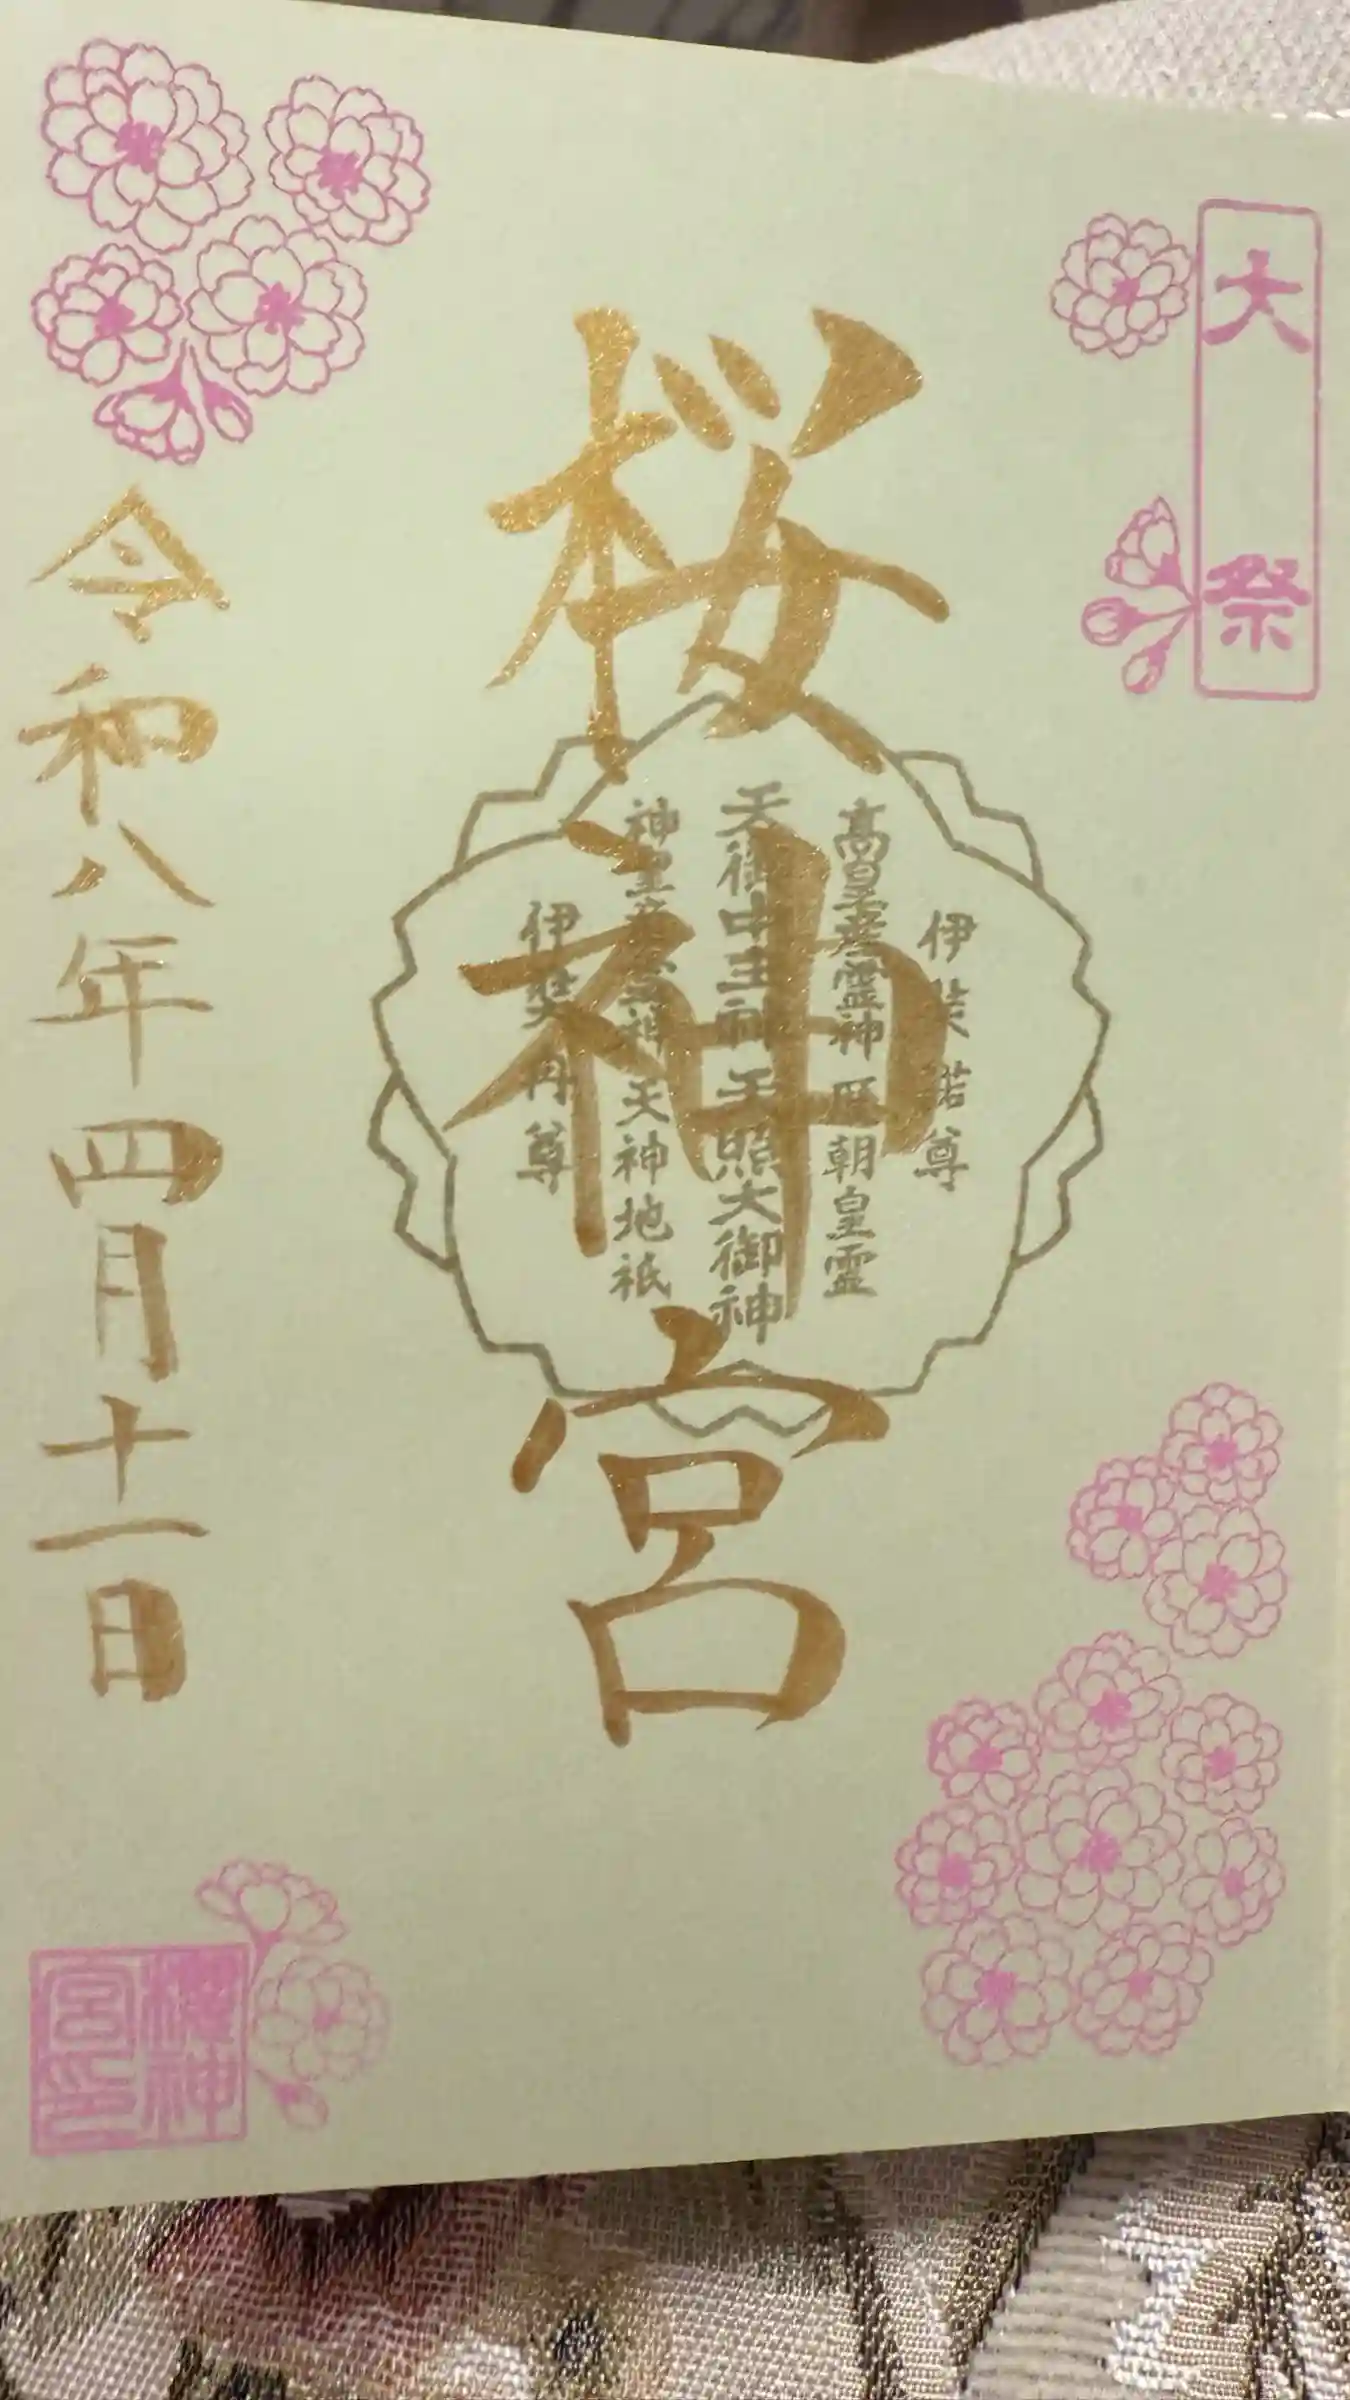 大祭
桜神宮
伊弉諾尊
高皇産霊神 歴朝皇霊
天御中主神 天照大御神
神皇産霊神 天神地祇
伊弉冉尊
令和八年四月十一日
櫻神
宮印